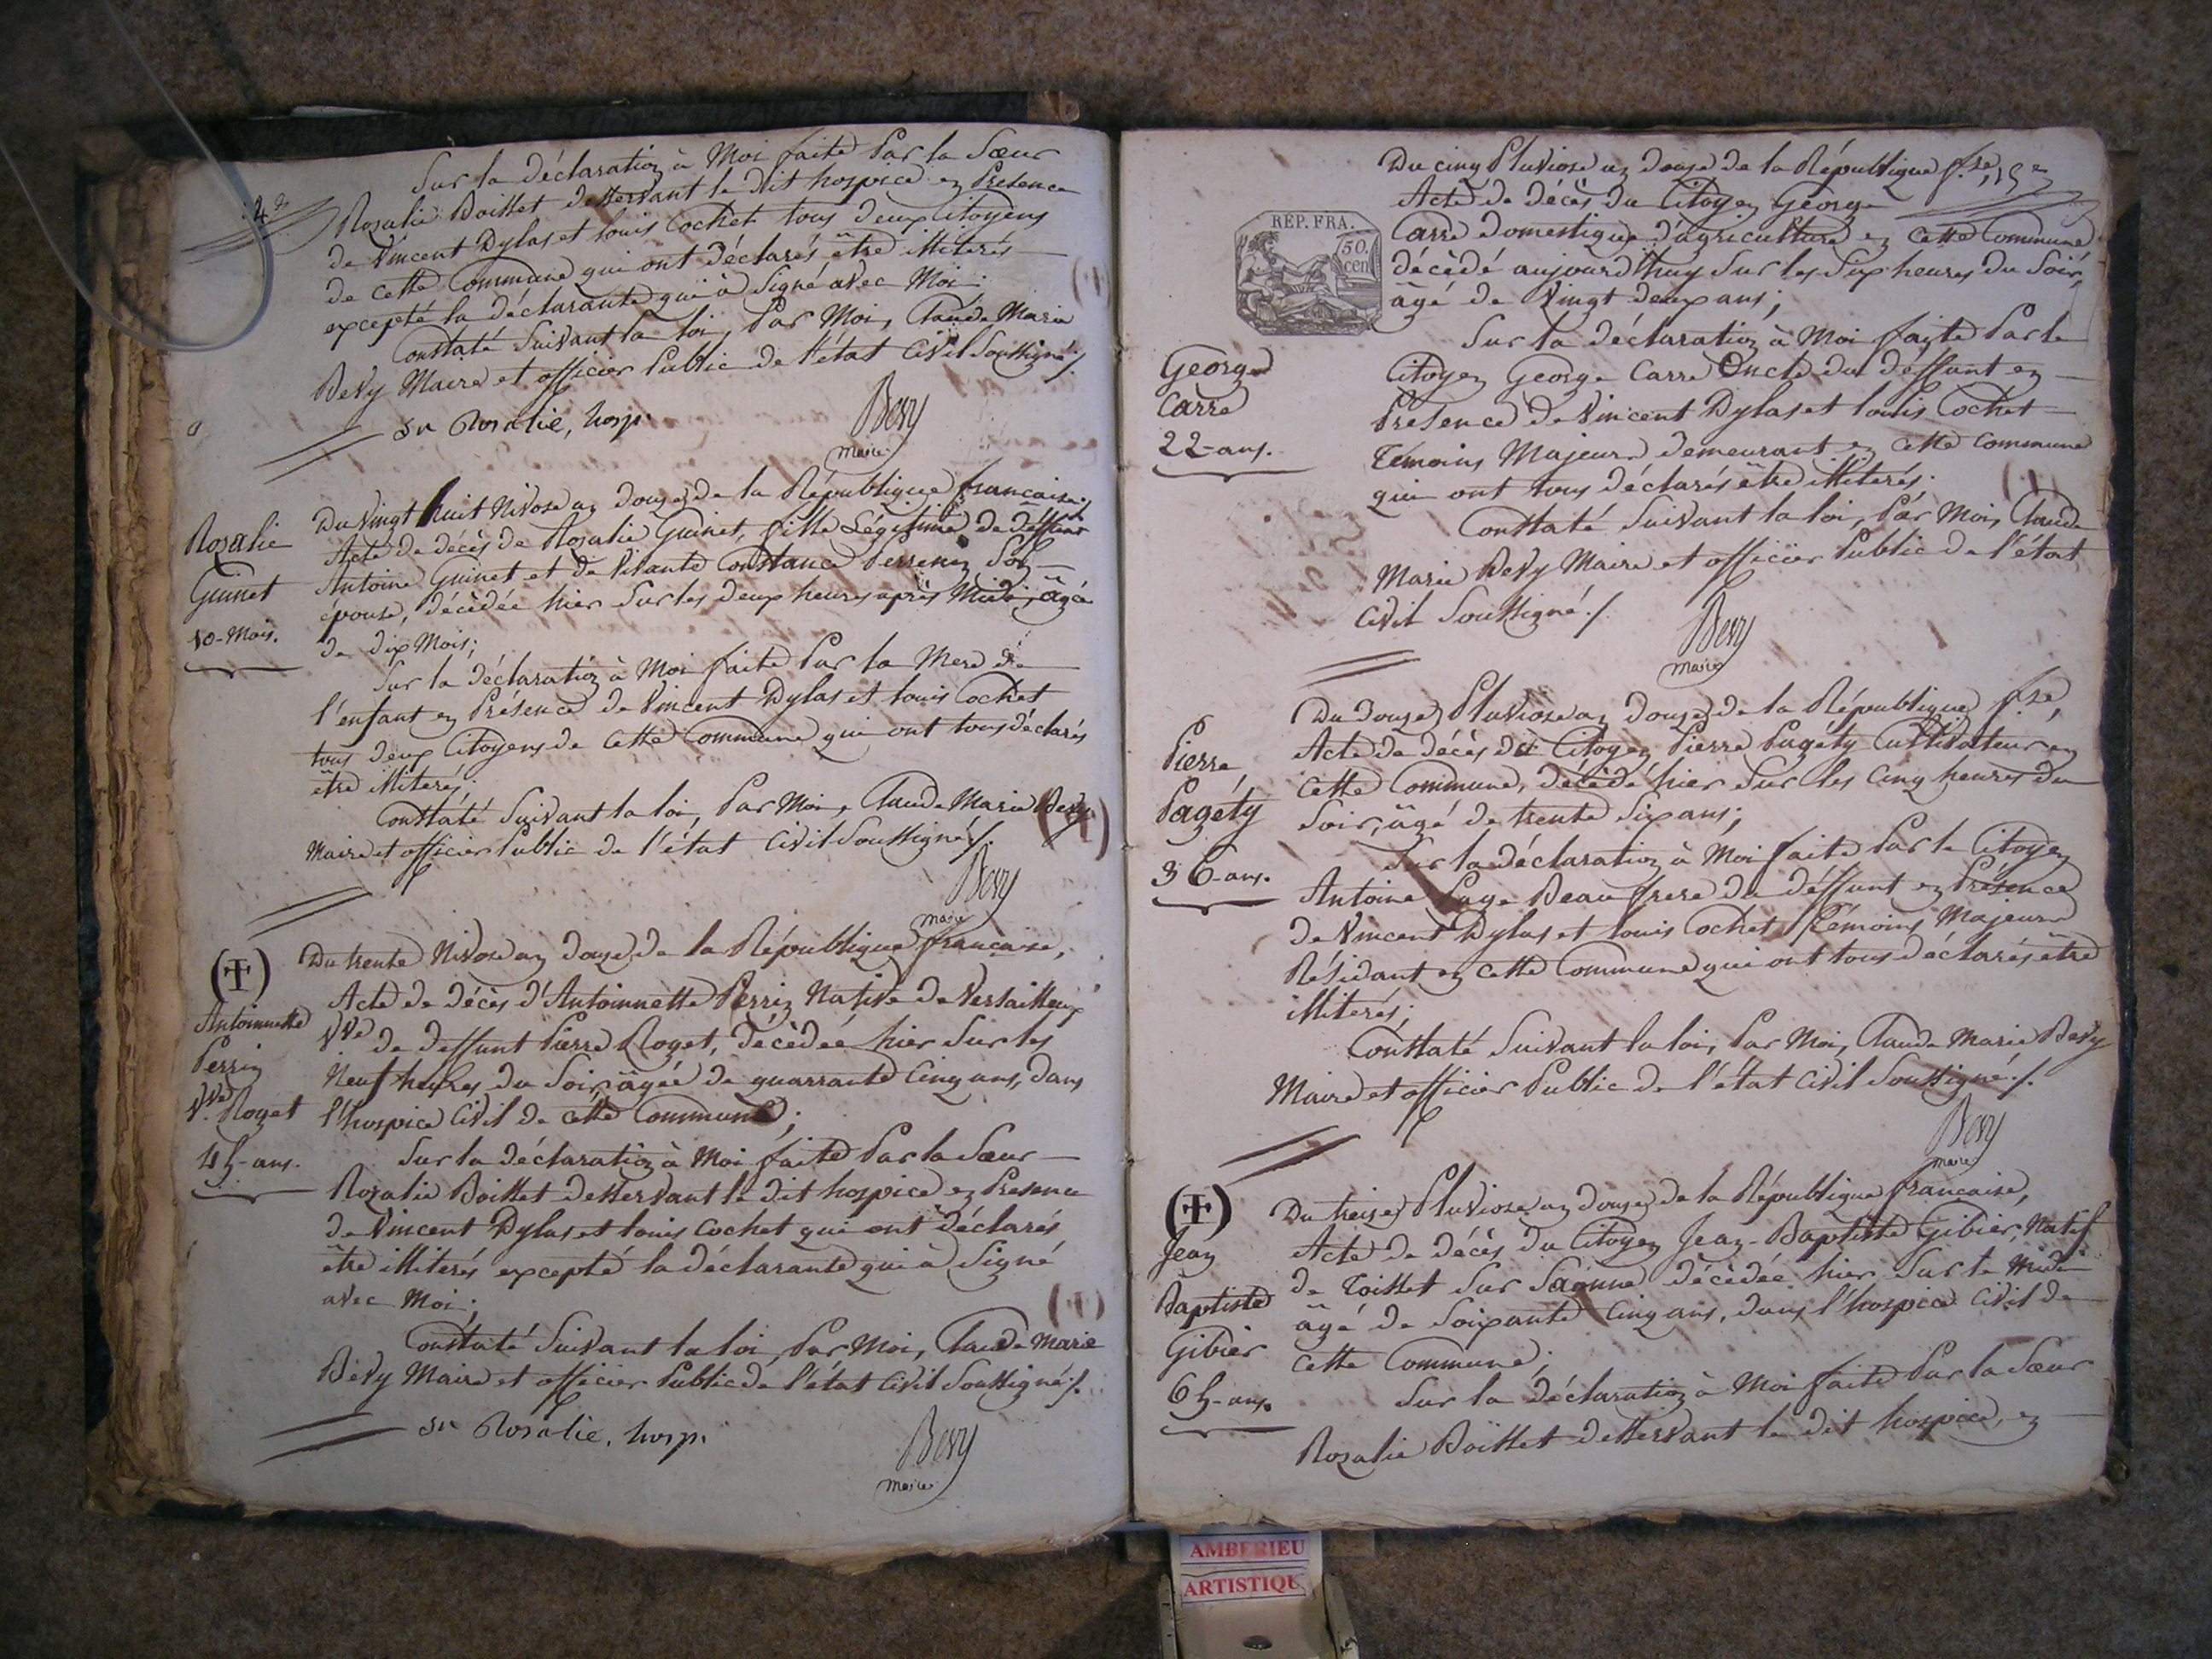 14e
Sur la déclaration à Moi faite Par la Sœur
Rosalie Boisset desservant le dit hospice en Presence
de Vincent Dylas et louis Cochet tous deux Citoyens
de cette Commune qui ont déclarés être illiterés
excepté la déclarante qui à Signé avec Moi.
Constaté Suivant la loi, Par Moi, Claude Marie
Bevy Maire et officier Public de l'état Civil Soussigné ./.
Sr Rosalie, hosp.
Bevy
maire
Rozalie
Guinet
10-Mois.
Du Vingt huit Nivose an douze de la République française.
Acte de décès de Rosalie Guinet, fille Légitime de deffunt
Antoine Guinet et de Vivante Constance Perrenen Son
épouse, décèdée hier Sur les deux heures après Midi, âgée
de dix Mois;
Sur la déclaration à Moi faite Par la Mere de
l'enfant en Présence de Vincent Dylas et louis Cochet
tous deux Citoyens de Cette Commune qui ont tous déclarés
être illiterés,
Constaté Suivant la loi, Par Moi, Claude Marie Bevy
Maire et officier Public de l'état Civil Soussigné ./.
Bevy
maire
Antoinnette
Perrin
Vve Roget
45-ans.
Du trente Nivose an douze de la République française,
Acte de décès d'Antoinnette Perrin Native de Versailleux
Vve de deffunt Pierre Roget, décèdée hier Sur les
Neuf heures du Soir, âgée de quarrante Cinq ans, dans
l'hospice Civil de cette Commune;
Sur la déclaration à Moi faite Par la Sœur
Rozalie Boisset desservant le dit hospice en Presence
de Vincent Dylas et louis Cochet qui ont déclarés
être illiterés excepté la déclarante qui à Signé
avec Moi;
Constaté Suivant la loi, Par Moi, Claude Marie
Bevy Maire et officier Public de l'état Civil Soussigné ./.
Sr Rosalie, hosp.
Bevy
maire
15e
RÉP. FRA.
50.
cen
George
Carre
22-ans.
Du cinq Pluviose an douze de la République fse,
Acte de décès du Citoyen George
Carre domestique d'agriculture en cette Commune
décèdé aujourd'huy Sur les Six heures du Soir,
âgé de Vingt deux ans;
Sur la déclaration à Moi faite Par le
Citoyen George Carre Oncle du deffunt en
Présence de Vincent Dylas et louis Cochet
Témoins Majeurs demeurant en cette Commune
qui ont tous déclarés être illiterés.
Constaté Suivant la loi, Par Moi, Claude
Marie Bevy Maire et officier Public de l'état
Civil Soussigné ./.
Bevy
maire
Pierre
Pagéty
36-ans.
Du douze Pluviose an douze de la République fse,
Acte de décès du Citoyen Pierre Pagéty Cultivateur en
cette Commune, décèdé hier Sur les Cinq heures du
Soir, âgé de trente Six ans;
Sur la déclaration à Moi faite Par le Citoyen
Antoine Page Beau frere du déffunt en Présence
de Vincent Dylas et louis Cochet Témoins Majeurs
Résidant en cette Commune qui ont tous déclarés être
illiterés;
Constaté Suivant la loi, Par Moi, Claude Marie Bevy
Maire et officier Public de l'état Civil Soussigné ./.
Bevy
maire
Jean
Baptiste
Gibier
65-ans.
Du treize Pluviose an douze de la République française,
Acte de décès du Citoyen Jean-Baptiste Gibier, Natif
de Toisset Sur Saônne décèdée hier Sur le Midi
âgé de Soixante Cinq ans, dans l'hospice Civil de
cette Commune;
Sur la déclaration à Moi faite Par la Sœur
Rozalie Boisset desservant le dit hospice, en
AMBERIEU
ARTISTIQU